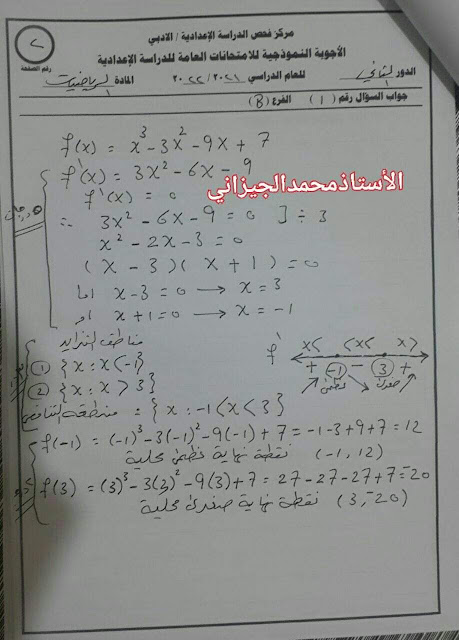 مركز فحص الدراسة الإعدادية / الادبي
الأجوبة النموذجية للامتحانات العامة للدراسة الإعدادية
٢
رقم الصفحة
الدور الثاني للعام الدراسي ٢٠٢١ / ٢٠٢٢ المادة الرياضيات
جواب السؤال رقم ( 1 ) الفرع ( B )
f(x) = x³ - 3x² - 9x + 7
f'(x) = 3x² - 6x - 9
الأستاذمحمدالجيزاني
f'(x) = 0
∴ 3x² - 6x - 9 = 0 ] ÷ 3
x² - 2x - 3 = 0
(x - 3)(x + 1) = 0
اما x - 3 = 0 → x = 3
او x + 1 = 0 → x = -1
مناطق التزايد
① {x : x < -1}
② {x : x > 3}
f' x< <x< x>
+ (-1) - (3) +
عظمى صغرى
منطقة التناقص : {x : -1 < x < 3}
f(-1) = (-1)³ - 3(-1)² - 9(-1) + 7 = -1 - 3 + 9 + 7 = 12
(-1, 12) نقطة نهاية عظمى محلية
f(3) = (3)³ - 3(3)² - 9(3) + 7 = 27 - 27 - 27 + 7 = 20
(3, -20) نقطة نهاية صغرى محلية